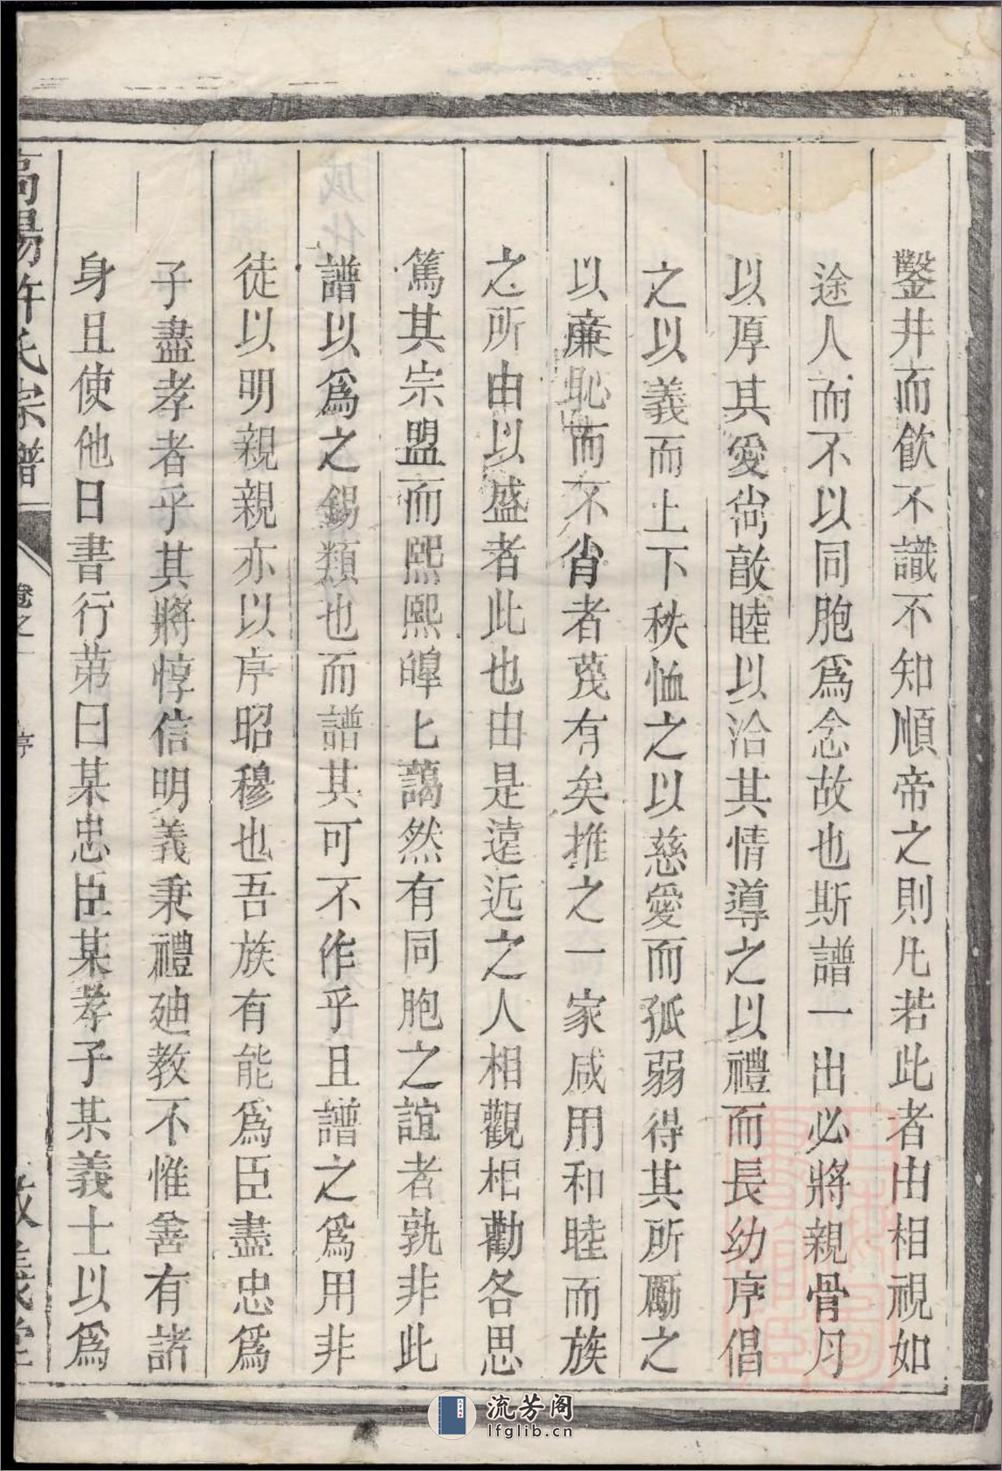 鑿井而飲不識不知順帝之則凡若此者由相視如
途人而不以同胞爲念故也斯譜一出必將親骨月
以厚其愛尙敵睦以洽其情導之以禮而長幼序倡
之以義而上下秩恤之以慈愛而孤弱得其所勵之
以廉恥而不肖者蔑有矣推之一家咸用和睦而族
之所由以盛者此也由是遠近之人相觀相勸各思
篤其宗盟而熙熙皥匕藹然有同胞之誼者孰非此
譜以爲之錫類也而譜其可不作乎且譜之爲用非
徒以明親親亦以序昭穆也吾族有能爲臣盡忠爲
子盡孝者乎其將惇信明義秉禮廸教不惟善有諸
身且使他日書行第曰某忠臣某孝子某義士以爲
高陽許氏宗譜 卷之一 序
流芳阁
lfglib.cn